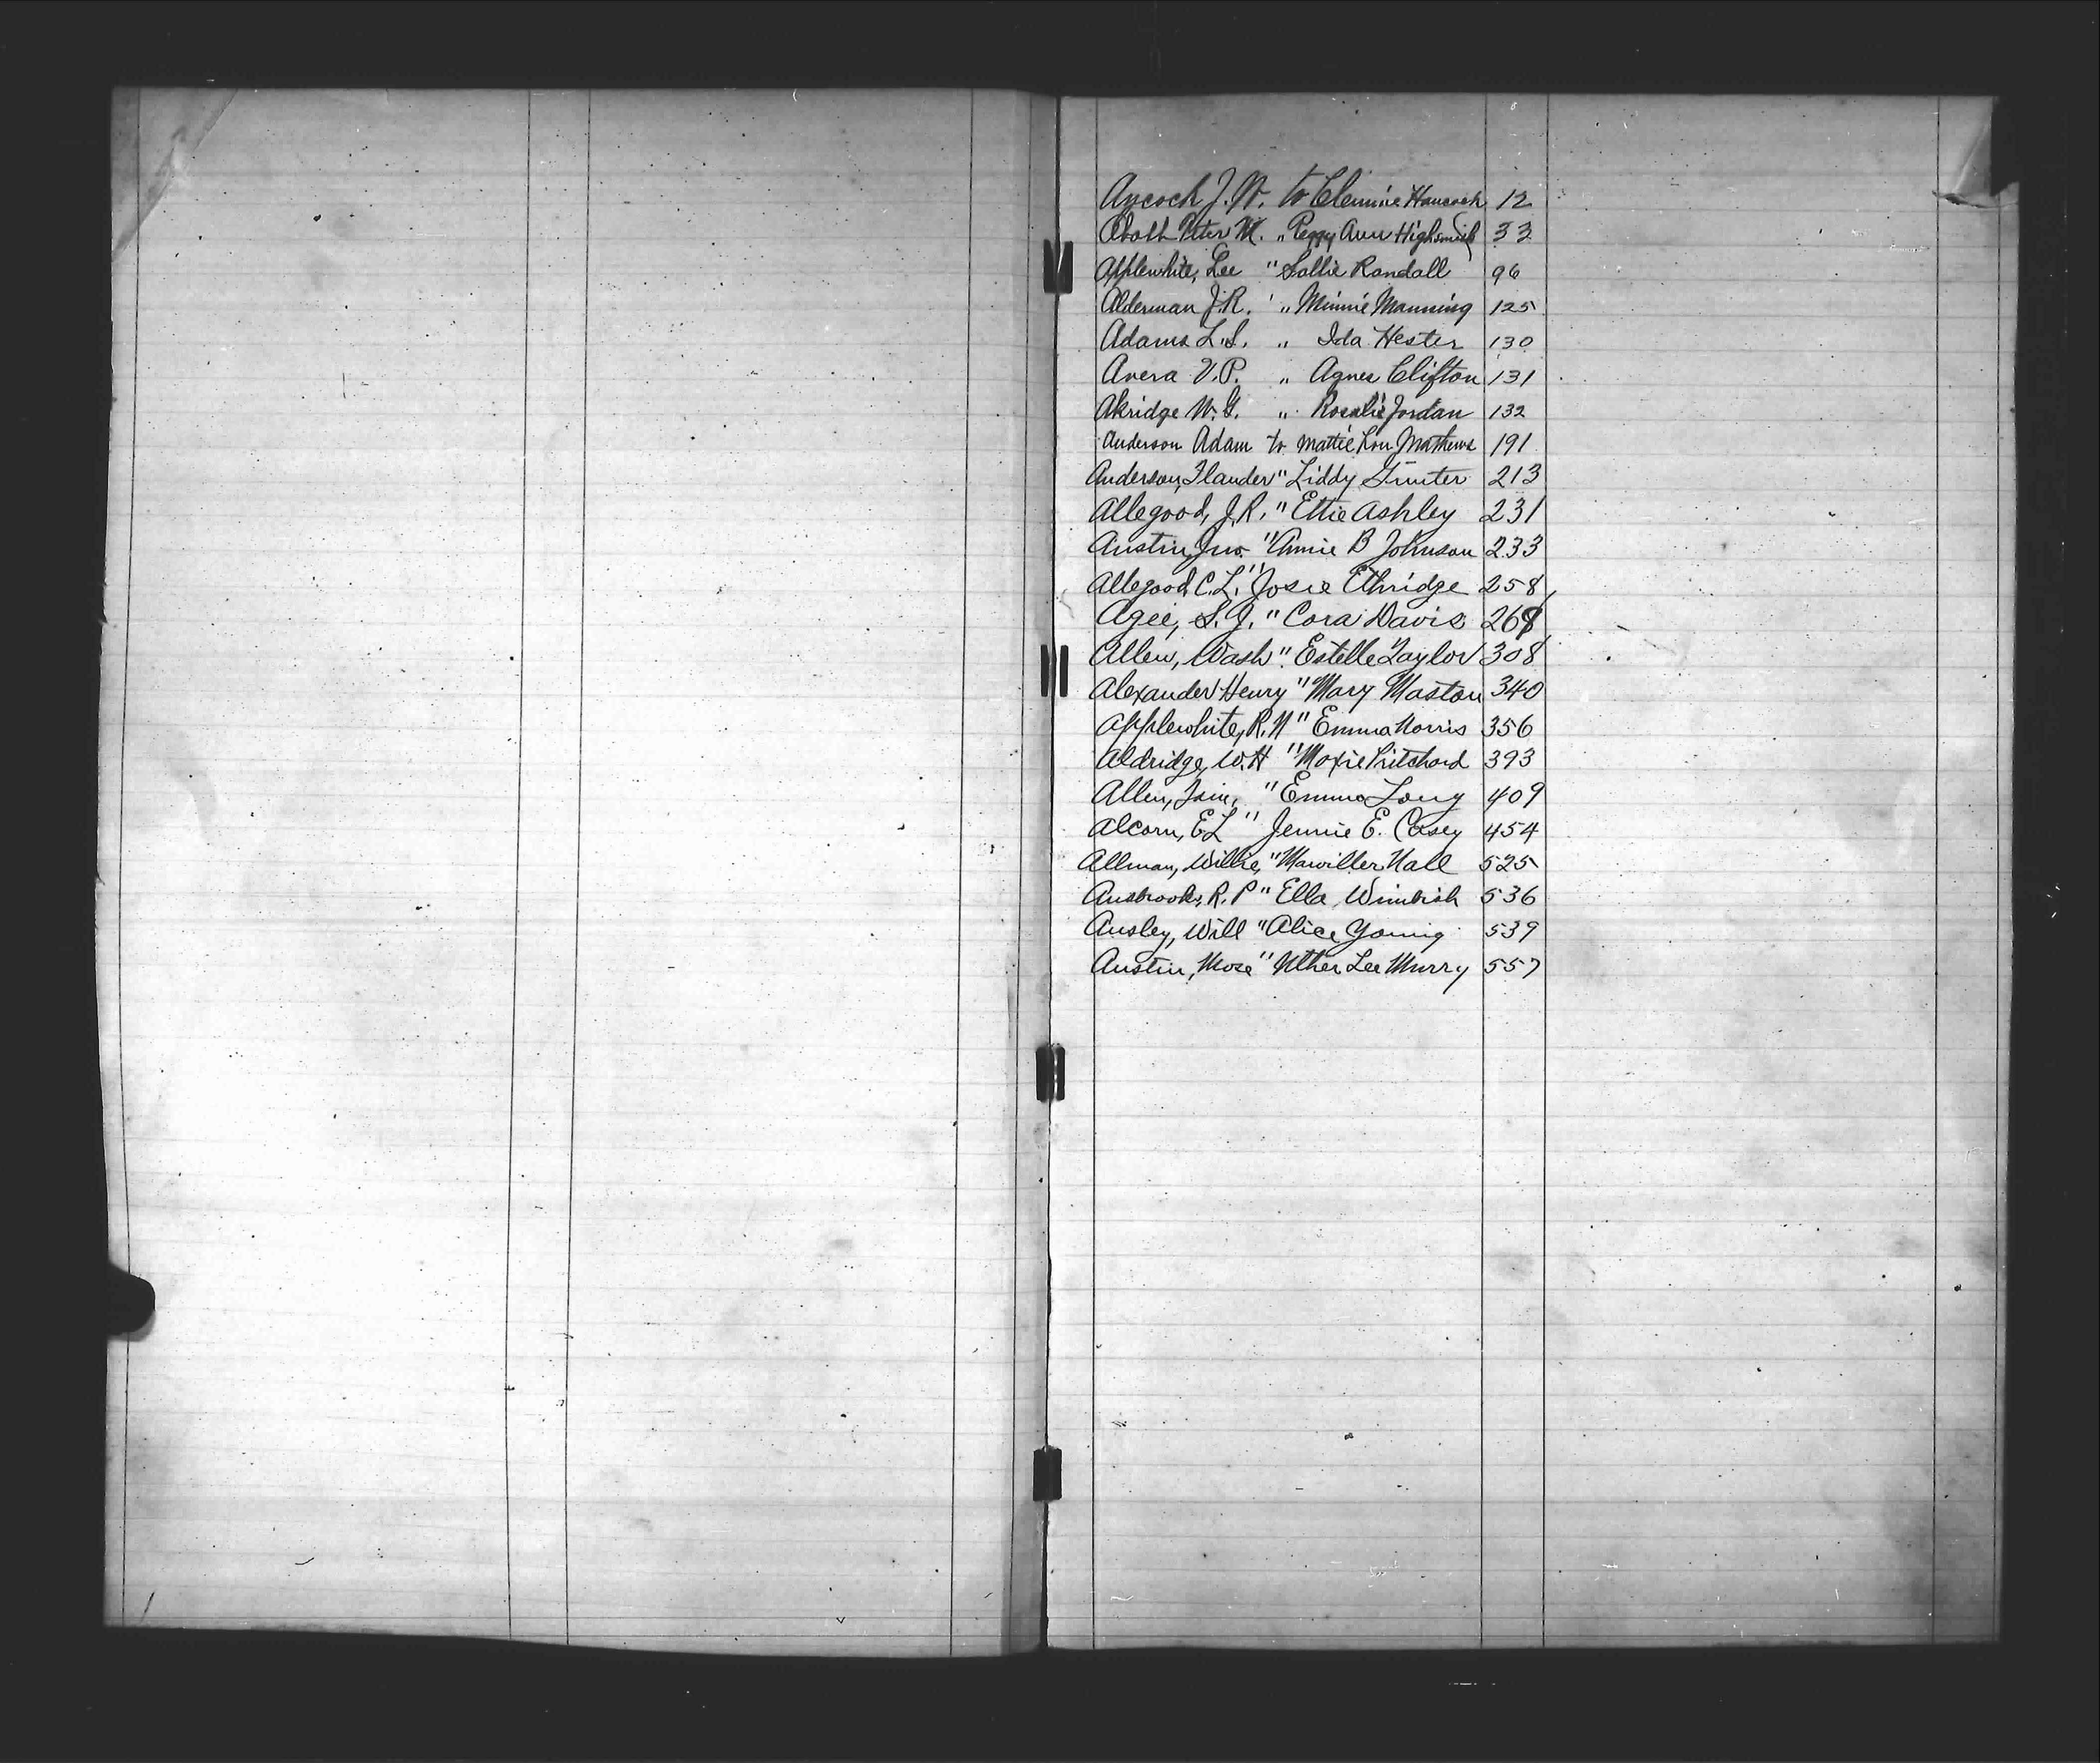 Aycock J. W. to Clemmie Hancock 12
Abott Peter M. " Peggy Ann Highsmith 33
Applewhite, Lee " Sallie Randall 96
Alderman J.R. " Minnie Manning 125
Adams L.S. " Ida Hester 130
Avera V.P. " Agnes Clifton 131
Akridge W.G. " Rosalie Jordan 132
Anderson Adam to Mattie Lou Mathews 191
Anderson, Flander " Liddy Gunter 213
Allegood, J.R. " Ettie Ashley 231
Austin, Jno. " Annie B Johnson 233
Allegood, C.L. " Josie Ethridge 258
Agee, S.J. " Cora Davis 268
Allen, Wash " Estelle Taylor 308
Alexander Henry " Mary Maston 340
Applewhite, R.N " Emma Norris 356
Aldridge, W.H " Moxie Pritchard 393
Allen, " Emma Long 409
Alcorn, E L " Jennie E. Casey 454
Allman, Willie, " Hall 525
Ansbrooks, R. P " Ella Wimbish 536
Ansley, Will " Alice Young 539
Austin, Mose " Lee Murry 557